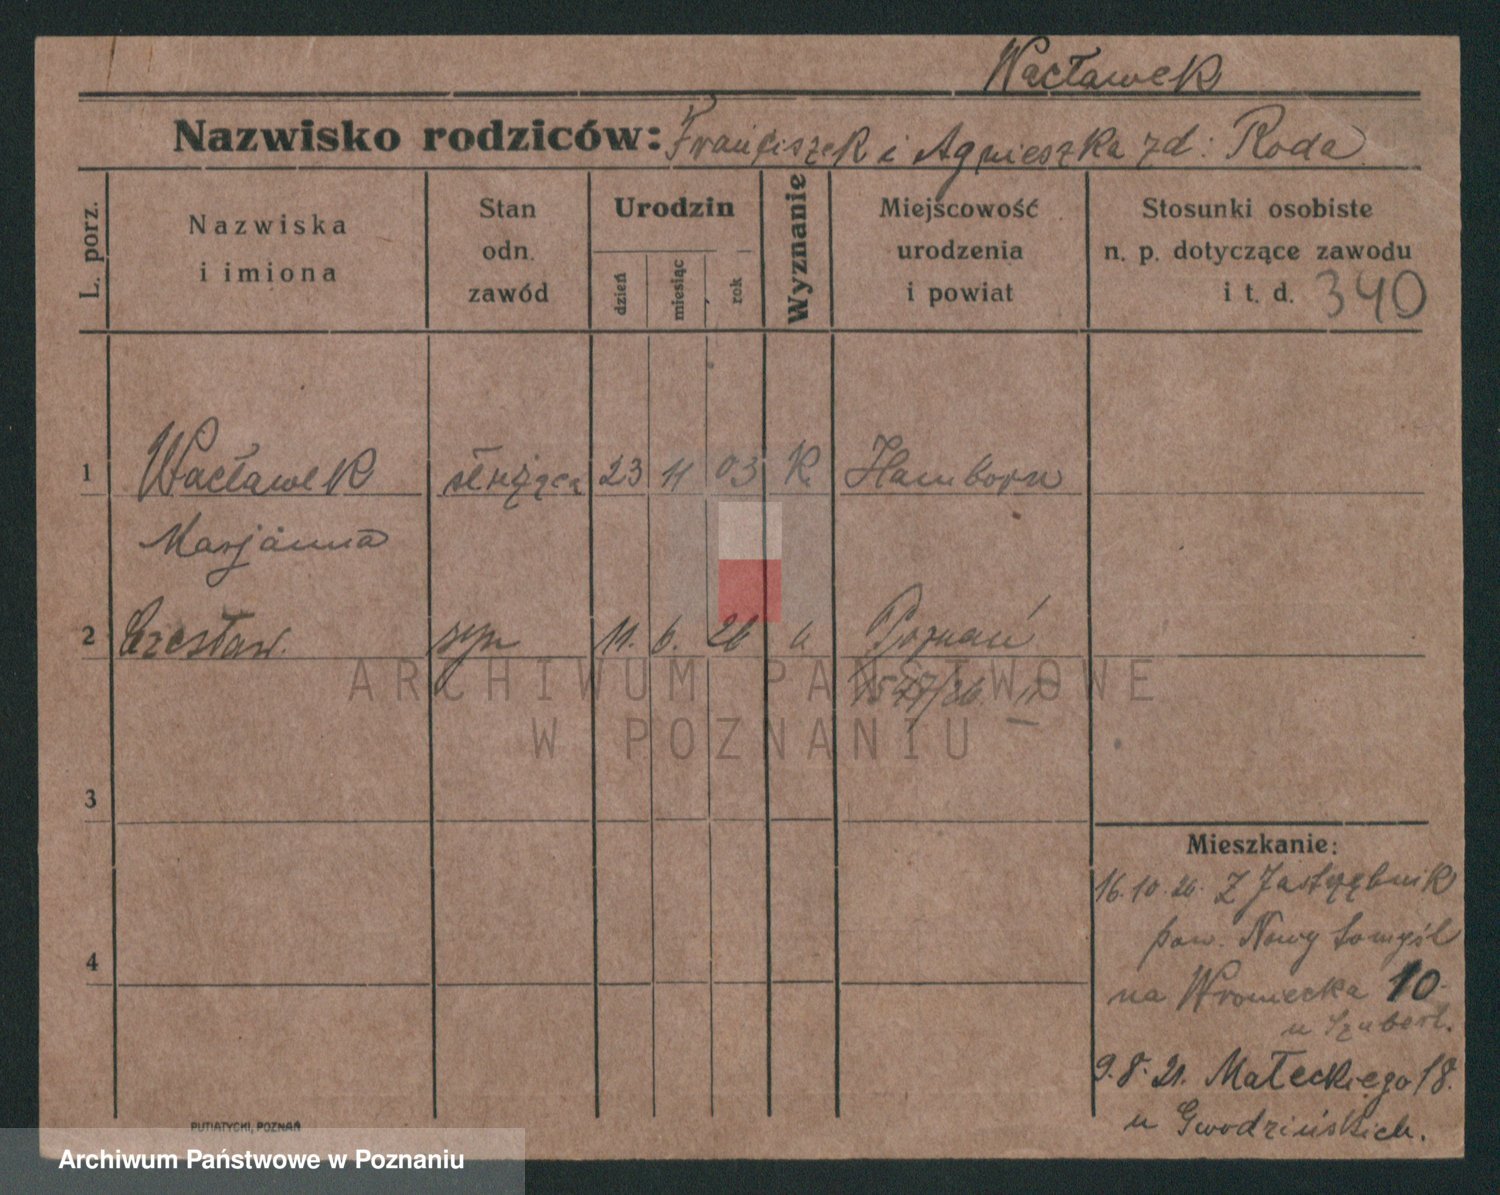 Wacławek
Nazwisko rodziców: Franciszek i Agnieszka zd: Roda
L. porz.
Nazwiska
i imiona
Stan
odn.
zawód
Urodzin
dzień
miesiąc
rok
Wyznanie
Miejscowość
urodzenia
i powiat
Stosunki osobiste
n. p. dotyczące zawodu
i t. d. 340
1 Wacławek służąca 23 11 03 K. Hamborn
Marjanna
2 Czesław. syn 11. 6. 26 Poznań
ARCHIWUM PAŃSTWOWE
W POZNANIU
3
4
Mieszkanie:
16.10.26. Z Jastrzębnik
pow. Nowy Tomyśl
na Wroniecka 10
u Szubert.
9.8. Małeckiego 18.
u Gwodzińskich.
PUTIATYCKI, POZNAŃ
Archiwum Państwowe w Poznaniu